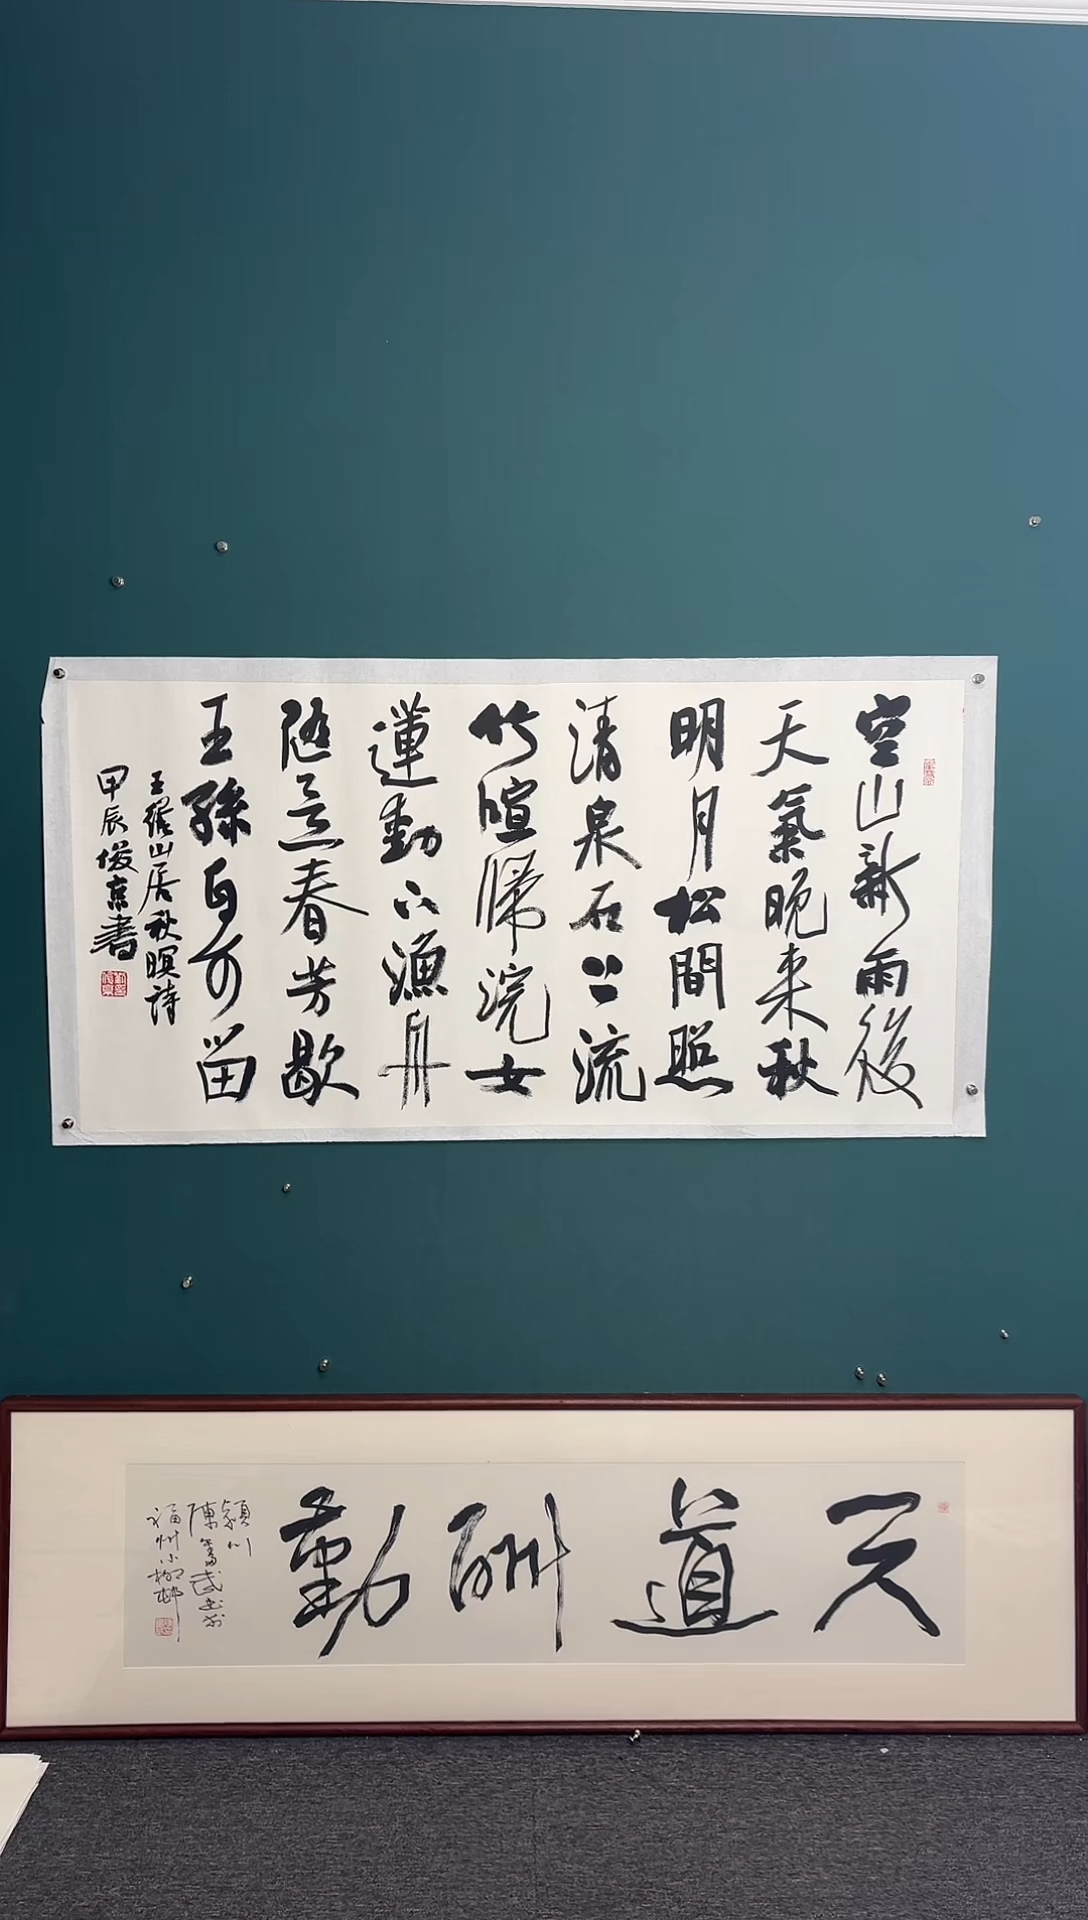 空山新雨後
天氣晚来秋
明月松間照
清泉石上流
竹喧歸浣女
蓮動下漁舟
随意春芳歇
王孫自可留
王維山居秋暝詩
甲辰俊京書
天道酬勤
潁川
陳奮武書於
福州小柳村